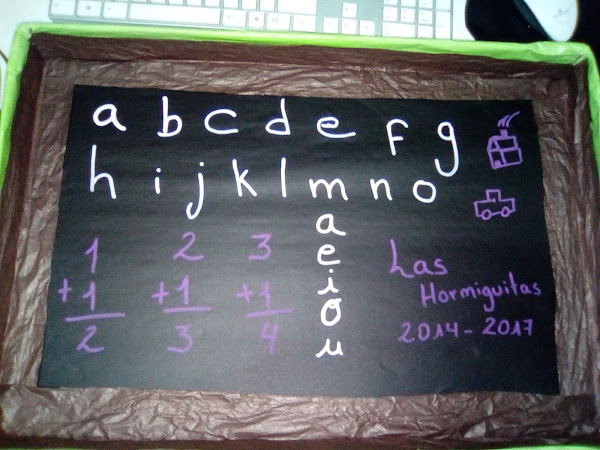 a b c d e f g
h i j k l m n o
1 2 3
+1 +1 +1
2 3 4
a
e
i
o
u
Las
Hormiguitas
2014-2017